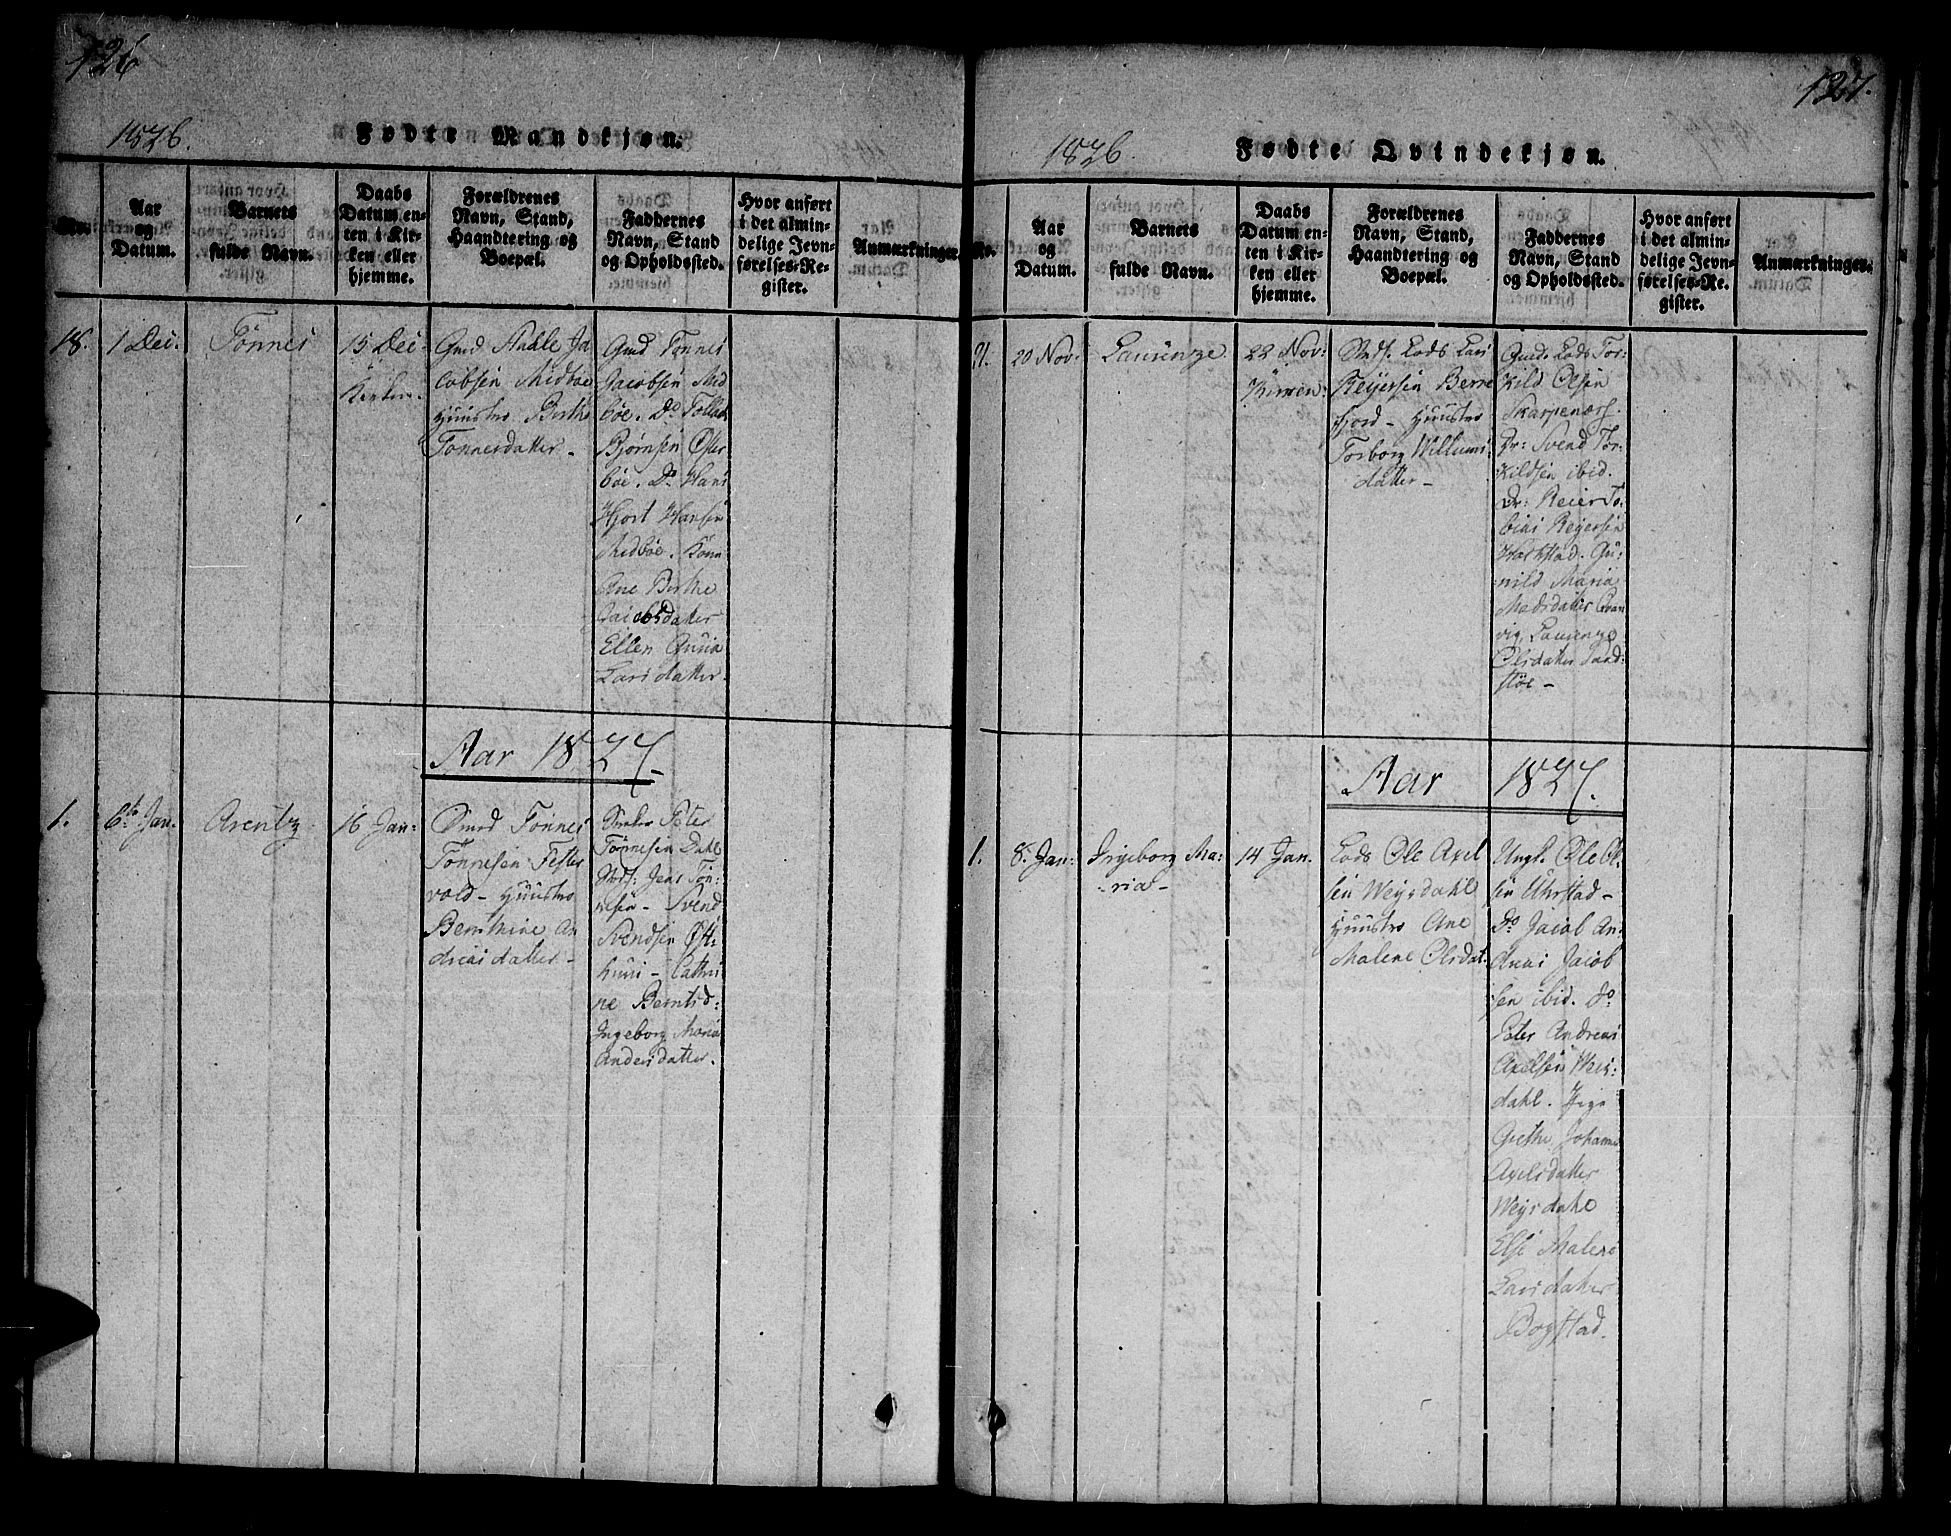 126
1826.
Fødte Mandkjøn.
No.
Aar og Datum.
Barnets fulde Navn.
Daabs Datum enten i Kirken eller hjemme.
Forældrenes Navn, Stand, Haandtering og Boepæl.
Faddernes Navn, Stand og Opholdssted.
Hvor anført i det almindelige Jevnførelses-Register.
Anmærkninger.
18.
1 Dec.
Tønnes
15 Dec.
Kirken.
Gmd Aadle Ja
cobsen Midbøe
Huustro Birthe
Tønnesdatter -
Gmd Tønnes
Jacobsen Mid
bøe. Do Tollak
Bjørnsen Øster
bøe. Do Hans
Hjort Hansen
Midbøe. Kone
Ane Birthe
Jacobsdatter
Ellen
Larsdatter.
Aar 1827.
1.
6te Jan.
Arentz
16 Jan:
Smed Tønnes
Tønnesen Fester
vold - Huustro
Bernthine An
dreasdatter -
Peter
Tønnesen Dahl
Jens Tøn-
nesen - Svend
Svendsen Øst-
huus - Cathri
ne Berntsd:
Ingeborg Maria
Andersdatter.
127.
1826.
Fødte Qvindekjøn.
No.
Aar og Datum.
Barnets fulde Navn.
Daabs Datum enten i Kirken eller hjemme.
Forældrenes Navn, Stand, Haandtering og Boepæl.
Faddernes Navn, Stand og Opholdssted.
Hvor anført i det almindelige Jevnførelses-Register.
Anmærkninger.
21.
20 Nov:
Laurenze
22 Nov:
Kirken:
Lods Lars
Reijersen Berre
fjord - Huustro
Torborg Willums
datter -
Gmd. Lods Tor-
kild Olsen
Skarpenæs.
Dr: Svend Tor-
kildsen ibid.
Dr: Reier To-
bias Reijersen
Gu-
nild Maria
Madsdatter Qvan
vig, Laurenze
Olsdatter Sand-
støe -
Aar 1827.
1.
8. Jan:
Ingeborg Ma-
ria -
14 Jan.
Lods Ole Axel
sen Weysdahl
Huustro Ane
Malene Olsdat.
Ungk. Ole Ol-
sen Uhrstad -
Do Jacob An-
dreas Jacob
sen ibid. Do
Peter Andreas
Axelsen Weis-
dahl. Pige
Grethe Johanne
Axelsdatter
Weysdahl
Else Malene
Larsdatter
Bogstad.